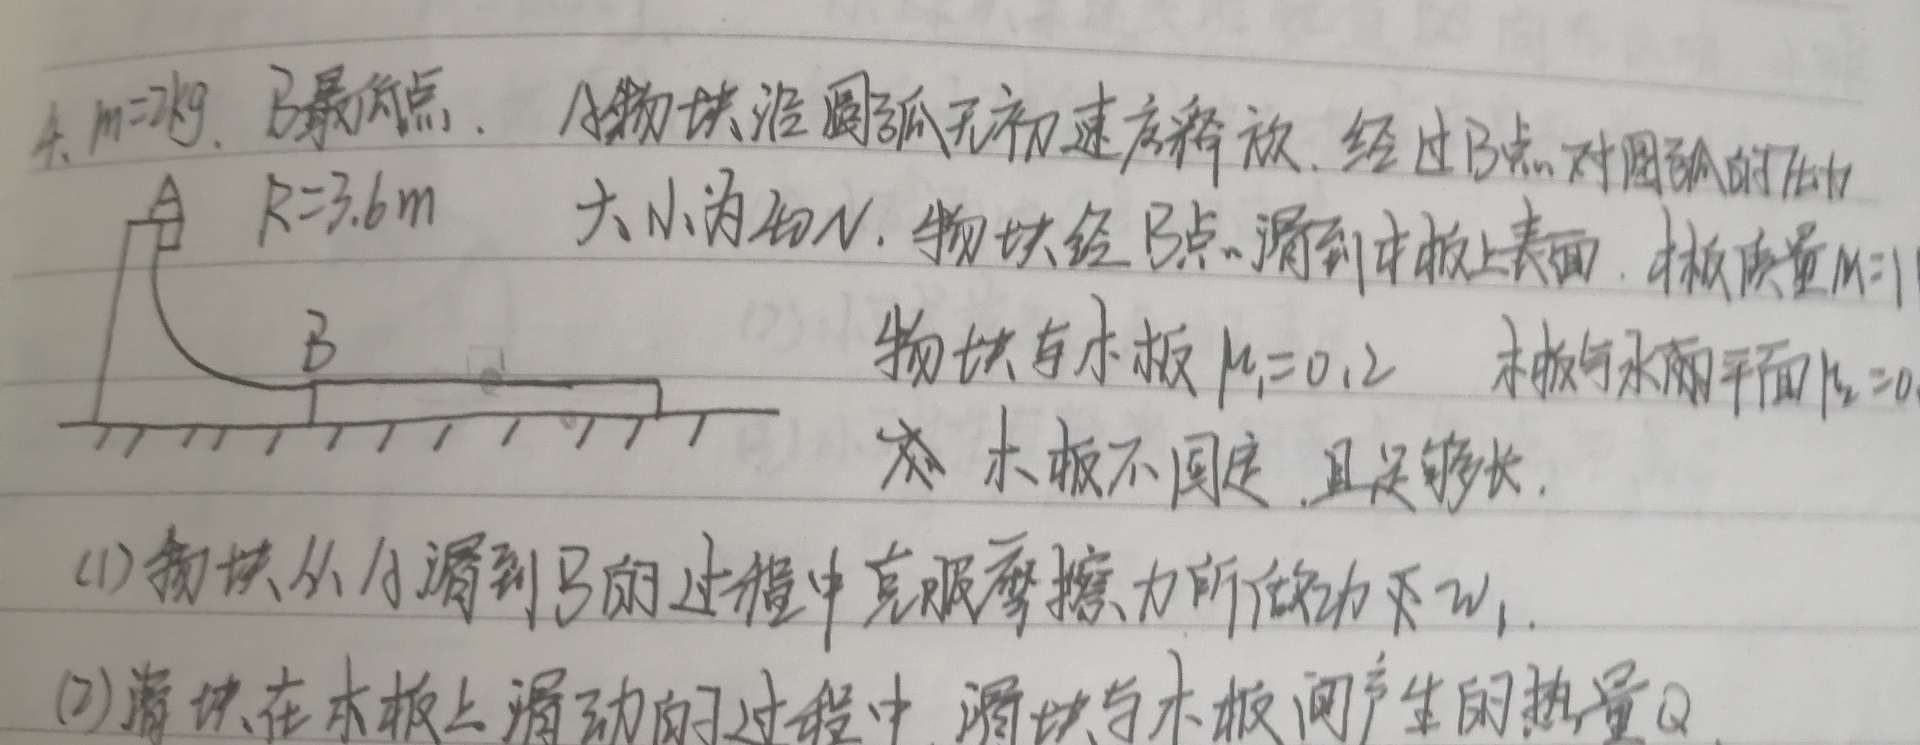 4. m=2kg. B最低点. A物块沿圆弧无初速度释放. 经过B点对圆弧的压力
A R=3.6m 大小为40N. 物块经B点滑到木板上表面. 木板质量M=1
B 物块与木板μ₁=0.2 木板与水平面μ₂=0.
木板不固定.且足够长.
(1)物块从A滑到B的过程中克服摩擦力所做功W₁.
(2)滑块在木板上滑动的过程中.滑块与木板间产生的热量Q